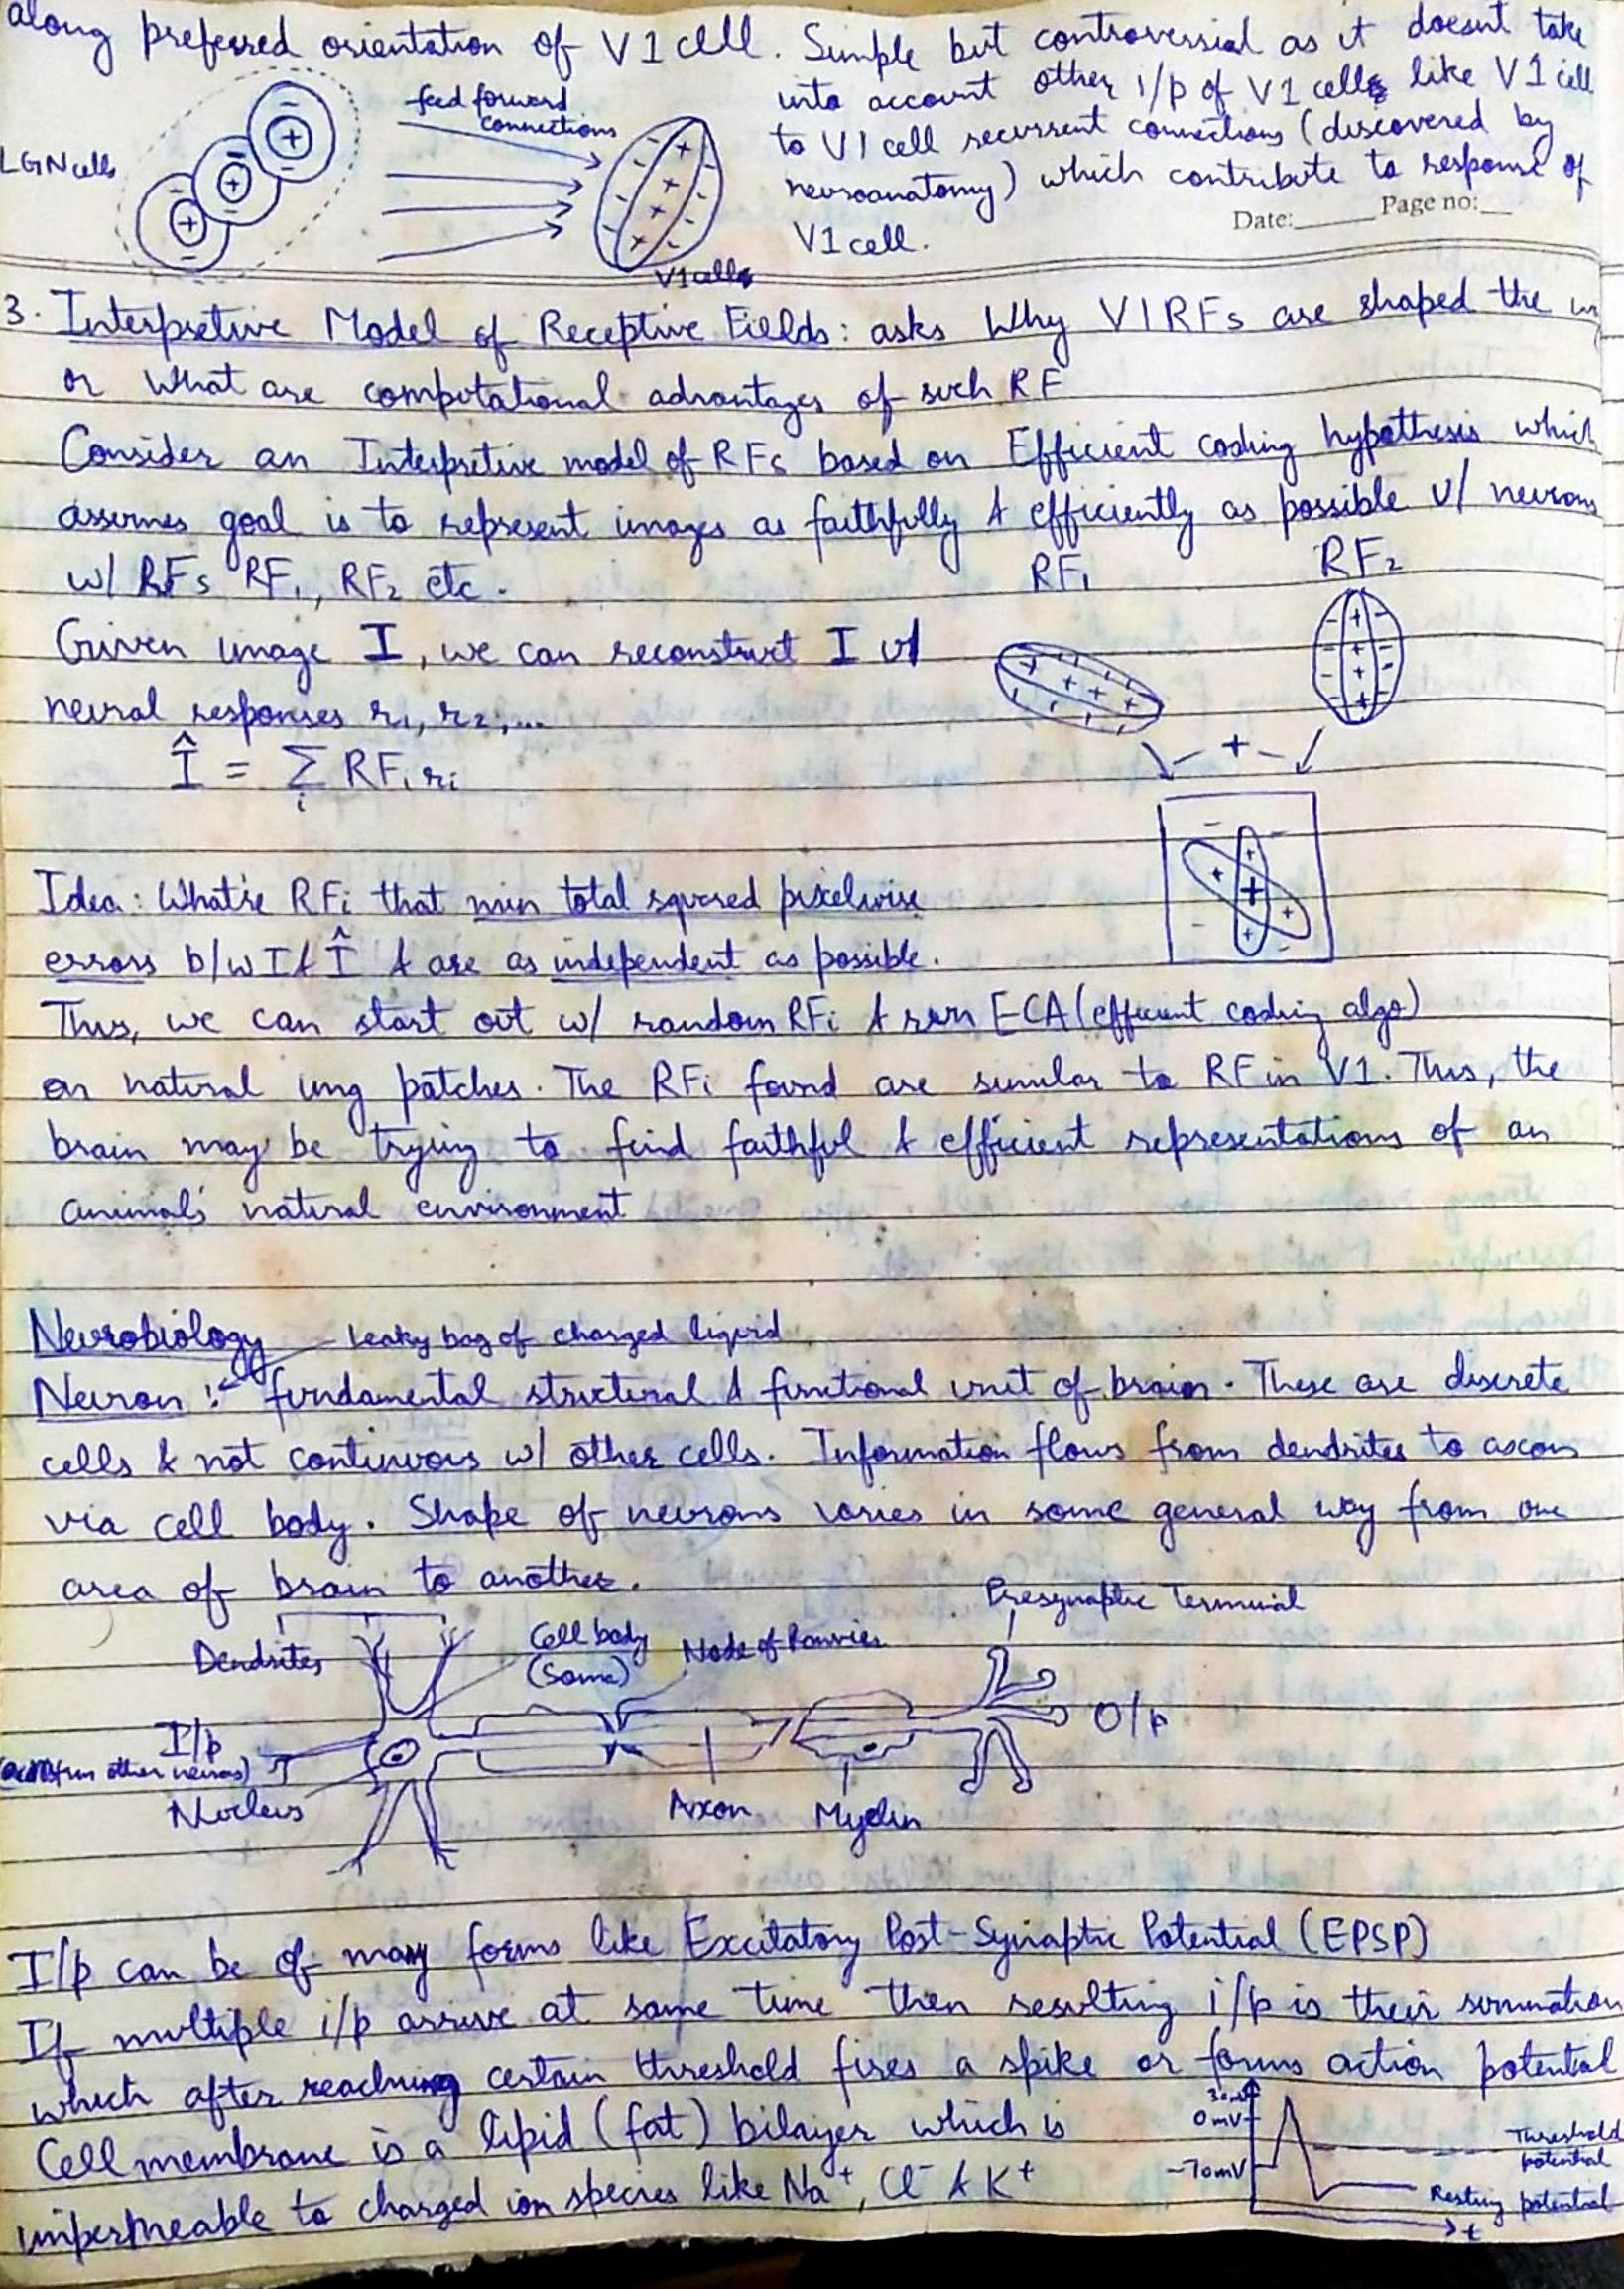 along preferred orientation of V1 cell. Simple but controversial as it doesnt take
into account other i/p of V1 cells like V1 cell
to V1 cell recurrent connections (discovered by
neuroanatomy) which contribute to response of
V1 cell.
feed forward
connections
LGN cells
V1 cells
Date:_____ Page no:__
3. Interpretive Model of Receptive Fields: asks Why V1RFs are shaped the
or What are computational advantages of such RF
Consider an Interpretive model of RFs based on Efficient coding hypothesis which
assumes goal is to represent images as faithfully & efficiently as possible w/ neurons
w/ RFs RF1, RF2 etc.
RF1
RF2
Given image I, we can reconstruct I w/
neural responses r1, r2, ...
Î = Σi RFi ri
Idea: What're RFi that min total squared pixelwise
errors b/w I & Î & are as independent as possible.
Thus, we can start out w/ random RFi & run ECA (efficient coding algo)
on natural img patches. The RFi found are similar to RF in V1. Thus, the
brain may be trying to find faithful & efficient representations of an
animal's natural environment
Neurobiology
Leaky bag of charged liquid
Neuron :- fundamental structural & functional unit of brain. These are discrete
cells & not continuous w/ other cells. Information flows from dendrites to axons
via cell body. Shape of neurons varies in some general way from one
area of brain to another.
Presynaptic Terminal
Dendrites
Cell body
(Soma)
Node of Ranvier
I/p
(axons from other neurons)
O/p
Nucleus
Axon
Myelin
I/p can be of many forms like Excitatory Post-Synaptic Potential (EPSP)
If multiple i/p arrive at same time then resulting i/p is their summation
which after reaching certain threshold fires a spike or forms action potential
Cell membrane is a lipid (fat) bilayer which is
impermeable to charged ion species like Na+, Cl- & K+
30mV
0mV
-70mV
Threshold
potential
Resting potential
t